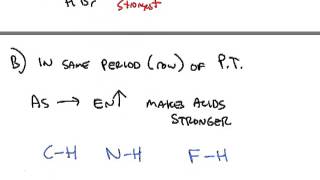 H Br strongest
B) IN SAME PERIOD (ROW) OF P.T.
AS → EN↑ MAKES ACIDS
STRONGER
C-H N-H F-H